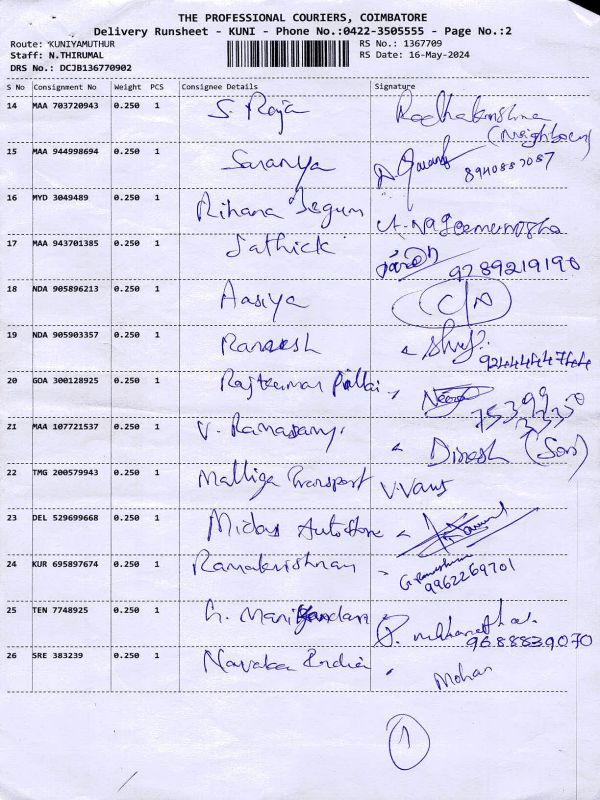 THE PROFESSIONAL COURIERS, COIMBATORE
Delivery Runsheet - KUNI - Phone No.:0422-3505555 - Page No.:2
Route: KUNIYAMUTHUR RS No.: 1367709
Staff: N.THIRUMAL RS Date: 16-May-2024
DRS No.: DCJB136770902
S No Consignment No Weight PCS Consignee Details Signature
14 MAA 703720943 0.250 1 S. Raja Radhakrishna
(Neighbour)
15 MAA 944998694 0.250 1 Saranya
8940857087
16 MYD 3049489 0.250 1 Rihana Begum
17 MAA 943701385 0.250 1 Sathick
9289219190
18 NDA 905896213 0.250 1 Aasiya C/N
19 NDA 905903357 0.250 1 Ramesh
924444744
20 GOA 300128925 0.250 1 Rajkumar Pillai
75399
33350
21 MAA 107721537 0.250 1 V. Ramasamy Dinesh (Son)
22 TMG 200579943 0.250 1 Malliga Transport
23 DEL 529699668 0.250 1 Midas Autostore
24 KUR 695897674 0.250 1 Ramakrishnan
9962269701
25 TEN 7748925 0.250 1 G. Manikandan
9688839070
26 SRE 383239 0.250 1 Navaka India Mohan
1